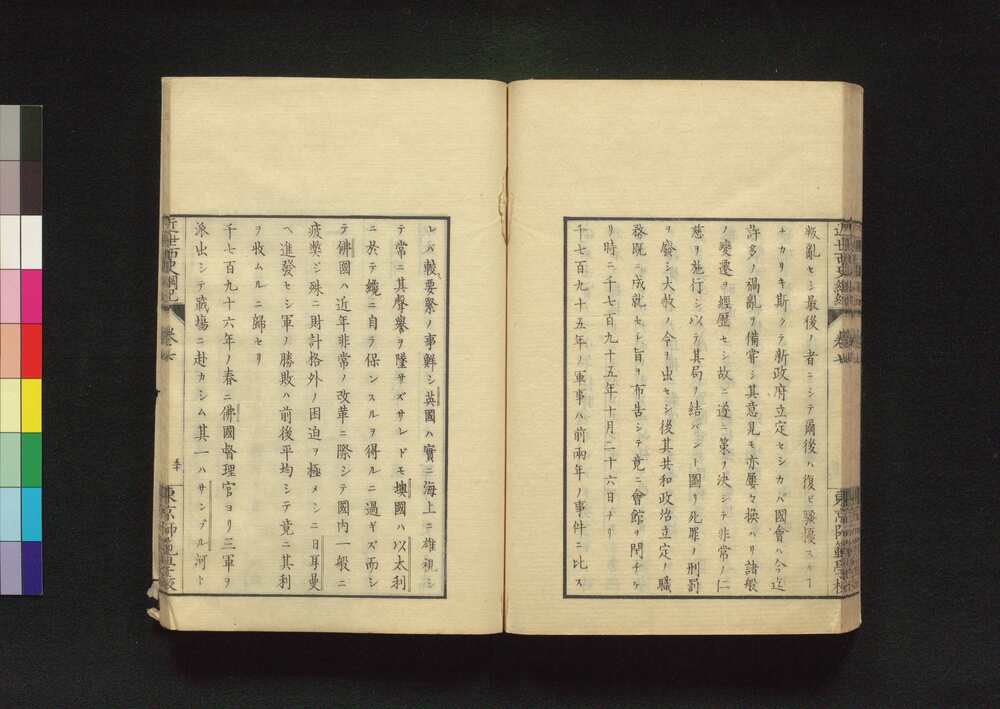 叛亂セシ最後ノ者ニシテ爾後ハ復ヒ騷擾スルヿ
ナカリキ斯クテ新政府立定セシカバ國會ハ今迄
許多ノ禍亂ヲ備嘗シ其意見モ亦屢々換ハリ諸般
ノ變遷ヲ經歷セシ故ニ遂ニ策ヲ決シテ非常ノ仁
慈ヲ施行シ以テ其局ヲ結バント圖リ死罪ノ刑罰
ヲ廢シ大赦ノ令ヲ出セシ後其共和政治立定ノ職
務既ニ成就セシ旨ヲ布告シテ竟ニ會館ヲ閉チタ
リ時ニ千七百九十五年十月二十六日ナリ
千七百九十五年ノ軍事ハ前兩年ノ事件ニ比ス
レハ較要緊ノ事鮮シ英國ハ實ニ海上ニ雄視シ
テ常ニ其聲譽ヲ墜サズサレドモ墺國ハ以太利
ニ於テ纔ニ自ラ保ンスルヲ得ルニ過ギズ而シ
テ佛國ハ近年非常ノ改革ニ際シテ國内一般ニ
疲獘シ殊ニ財計格外ノ困迫ヲ極メシニ日耳曼
ヘ進發セシ軍ノ勝敗ハ前後平均シテ竟ニ其利
ヲ收ムルニ歸セリ
千七百九十六年ノ春ニ佛國督理官ヨリ三軍ヲ
派出シテ戰塲ニ赴カシム其一ハサンブル河ト
近世西史綱紀 卷七
東京師範學校